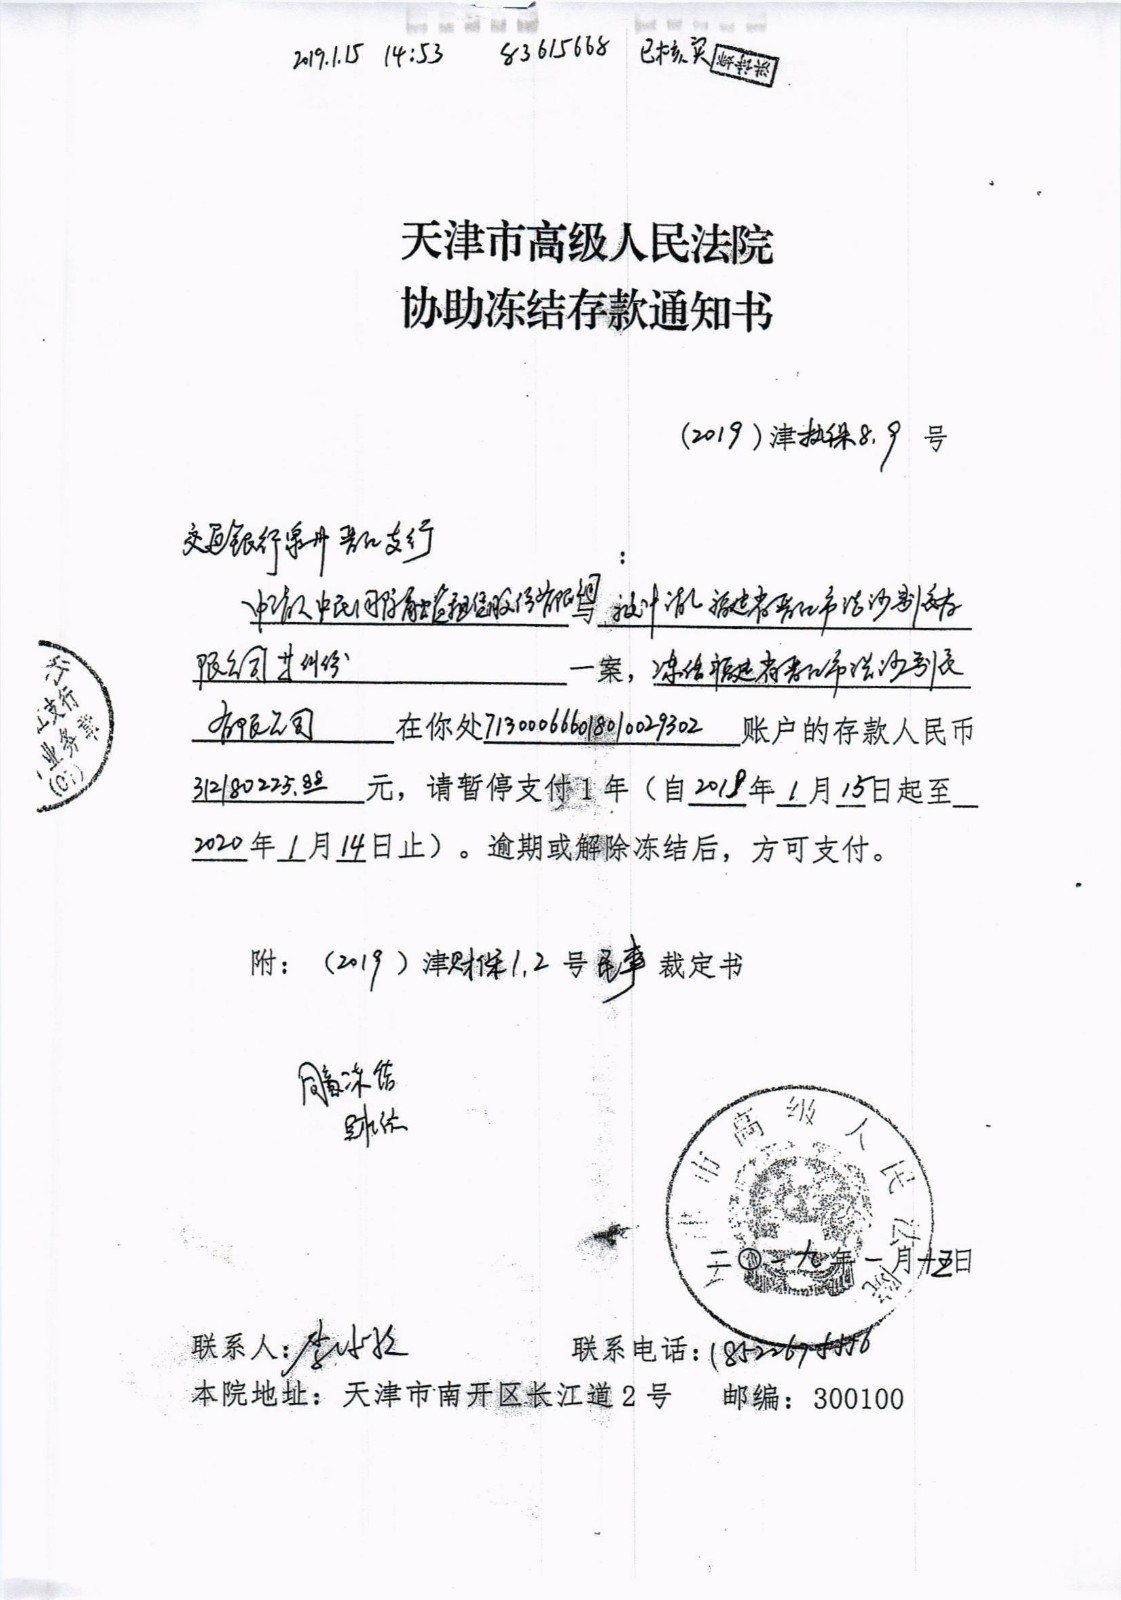 2019.1.15 14:53 83615668 已核实
天津市高级人民法院
协助冻结存款通知书
(2019)津执保8.9号
交通银行泉州晋江支行:
申请人中民国际融资租赁股份有限
福建省晋江市
限公司 一案,冻结福建省晋江市
有限公司 在你处713000666018010029302账户的存款人民币
312180225.88元,请暂停支付1年(自2019年1月15日起至
2020年1月14日止)。逾期或解除冻结后,方可支付。
附:(2019)津财保1.2号民事裁定书
同意冻结
高级人民法院
二〇一九年一月十五日
支行
业务章
(01)
联系人: 联系电话:
本院地址:天津市南开区长江道2号 邮编:300100